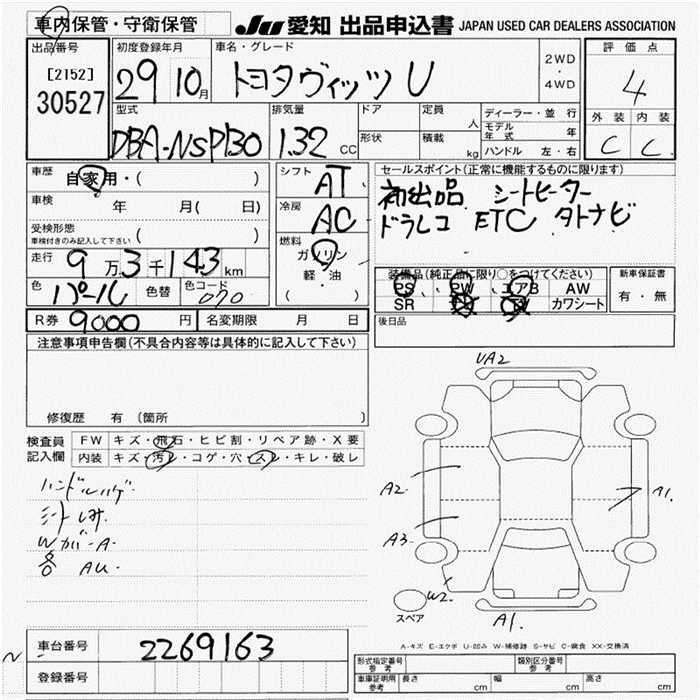 車内保管・守衛保管
JU 愛知 出品申込書 JAPAN USED CAR DEALERS ASSOCIATION
出品番号
[2152]
30527
初度登録年月
29 10月
車名・グレード
トヨタヴィッツ U
2WD
・
4WD
評価点
4
外装 内装
C C
型式
DBA-NSP130
排気量
1.32 CC
ドア
形状
定員
人
積載
kg
ディーラー・並行
モデル年式 年
ハンドル 左・右
車歴
自家用・( )
車検
年 月( 日)
受検形態
車検付きのみ記入して下さい ( )
走行
9万3千143km
色
パール
色替
色コード
070
R券 9000 円
名変期限 月 日
シフト
AT
冷房
AC
燃料
ガソリン
軽・油
( )
セールスポイント(正常に機能するものに限ります)
初出品 シートヒーター
ドラレコ ETC タトナビ
装備品(純正品に限り○をつけてください)
PS PW エアB AW
SR TV カワシート
新車保証書
有・無
後日品
注意事項申告欄(不具合内容等は具体的に記入して下さい)
修復歴 有 (箇所
検査員
記入欄
FW キズ・飛石・ヒビ割・リペア跡・X要
内装 キズ・汚レ・コゲ・穴・スレ・キレ・破レ
ハンドルハゲ
シートしみ.
Wガバ-A-
各 AU-
UA2
A2
A3
A1.
W2
A1.
スペア
A-キズ E-エクボ U-凹み W-補修跡 S-サビ C-腐食 XX-交換済
車台番号 2269163
登録番号
型式指定番号
参考
類別区分番号
参考
車庫証明用
参考
長さ cm 幅 cm 高さ cm